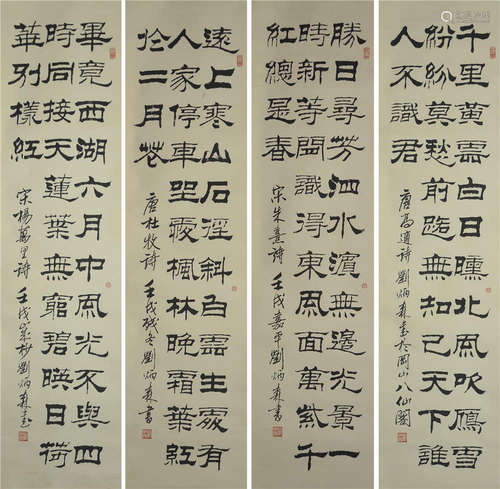 千里黃雲白日曛北風吹鴈雪
紛紛莫愁前路無知己天下誰
人不識君
唐高適詩 劉炳森書於岡山八仙閣
勝日尋芳泗水濱無邊光景一
時新等閒識得東風面萬紫千
紅總是春
宋朱熹詩 壬戌嘉平劉炳森書
遠上寒山石徑斜白雲生處有
人家停車坐愛楓林晚霜葉紅
於二月花
唐杜牧詩 壬戌殘冬劉炳森書
畢竟西湖六月中風光不與四
時同接天蓮葉無窮碧暎日荷
華別樣紅
宋楊萬里詩 壬戌歲杪劉炳森書